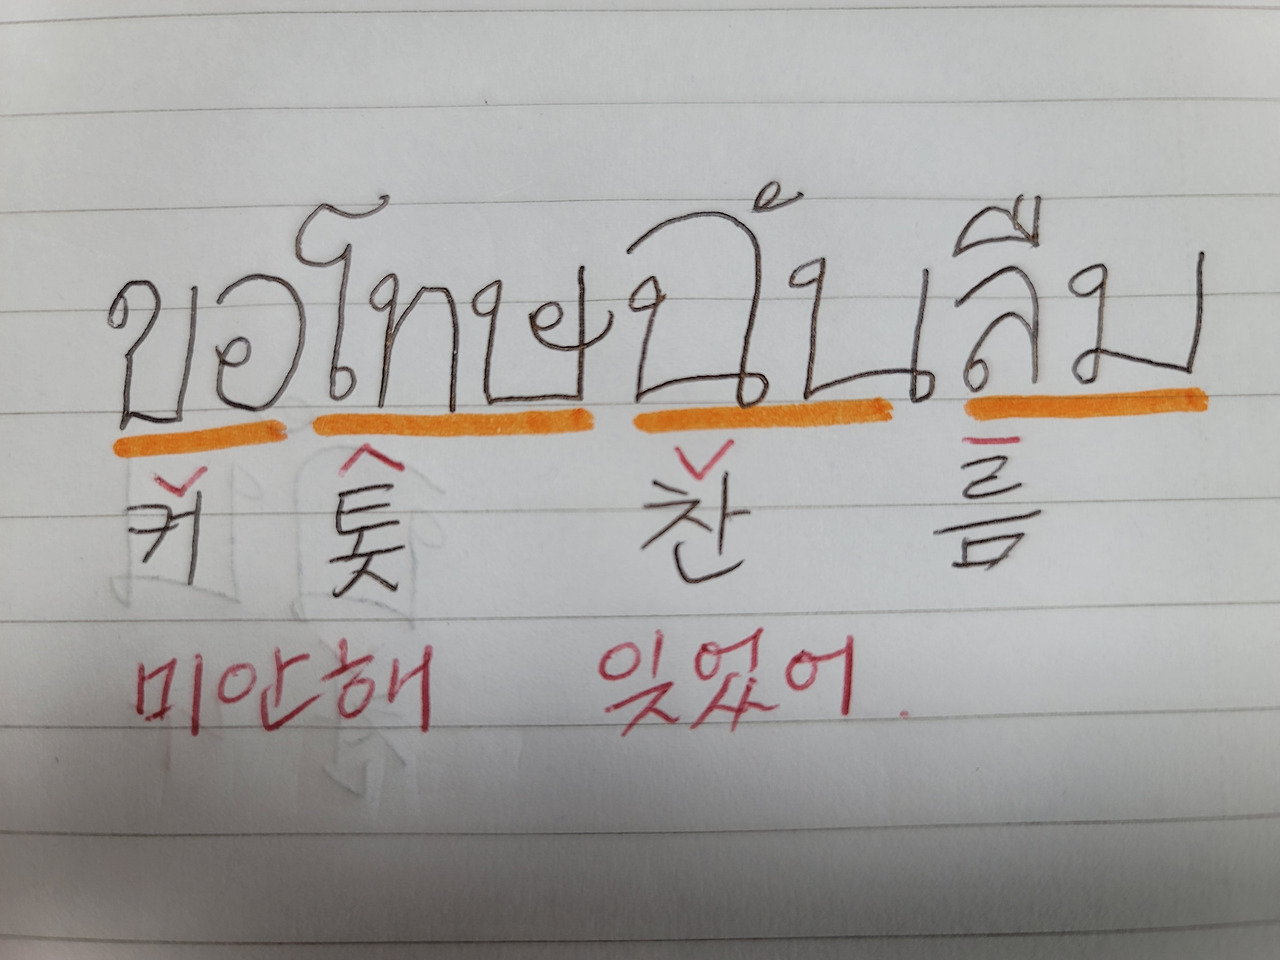 ขอโทษฉันลืม
커 톳 찬 름
미안해 잊었어.